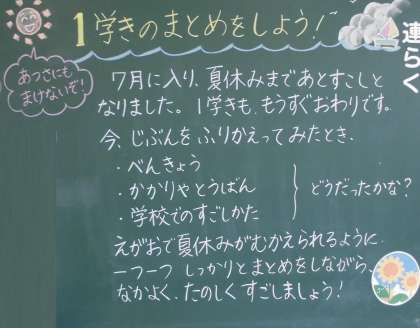 1学きのまとめをしよう!
連らく
あつさにも
まけないぞ!
7月に入り、夏休みまであとすこしと
なりました。1学きも、もうすぐおわりです。
今、じぶんをふりかえってみたとき、
・べんきょう
・かかりやとうばん
・学校でのすごしかた
どうだったかな?
えがおで夏休みがむかえられるように、
一つ一つしっかりとまとめをしながら、
なかよく、たのしくすごしましょう!